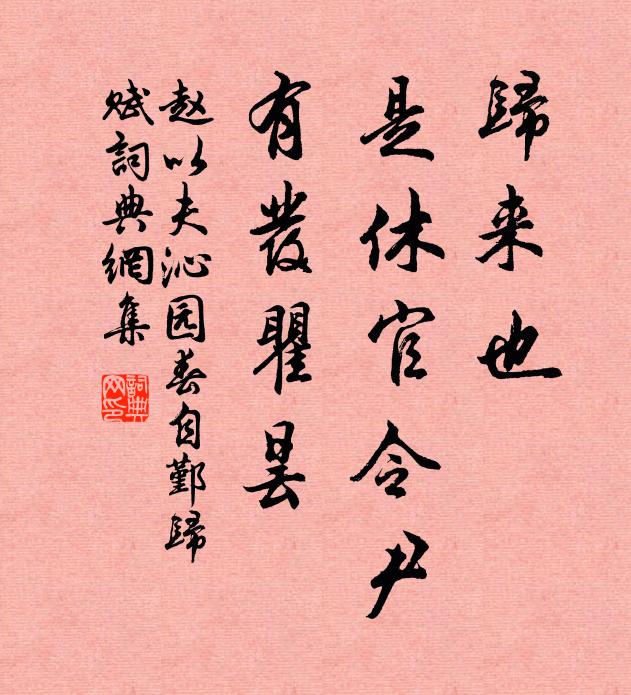 歸来也
是休官令尹
有發瞿昙
赵以夫沁园春自鄞歸
赋詞典網集
詞典
网印